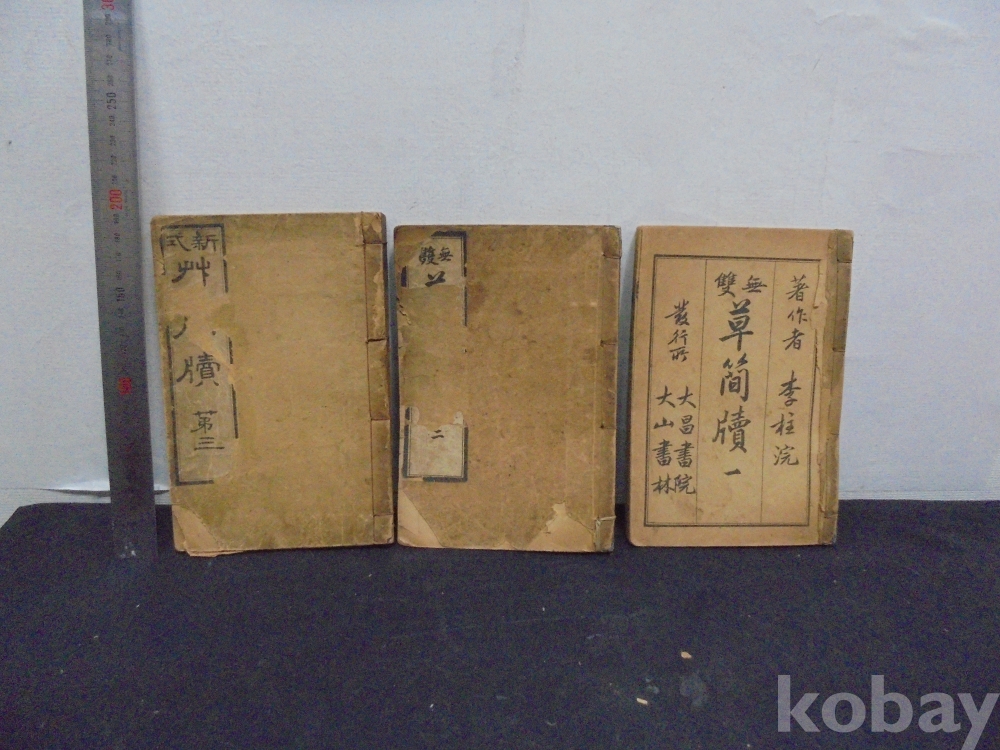 新式
艸
牘
第三
無雙
二
著作者 李柱浣
無雙
草簡牘 一
發行所
大昌書院
大山書林
250
200
kobay